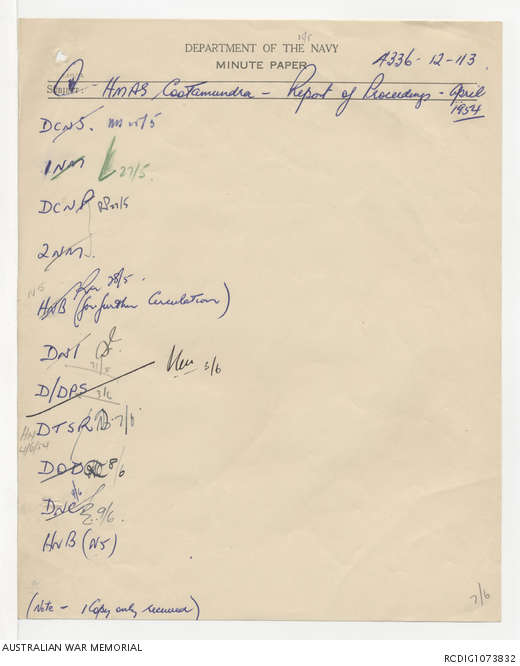 DEPARTMENT OF THE NAVY
MINUTE PAPER
A336-12-113
SUBJECT: HMAS Cootamundra - Report of Proceedings - April
1954
DCNS. 25/5
1NM 27/5.
DCNP 27/5
2NM.
28/5.
NS
HNB (for further Circulation)
DNI
31/5
D/DPS 3/6
3/6
DTSR 7/6
4/6/54
DOD 8/6
9/6
DNC 9/6.
HNB (NS)
(Note - 1 Copy only received)
7/6
AUSTRALIAN WAR MEMORIAL
RCDIG1073832